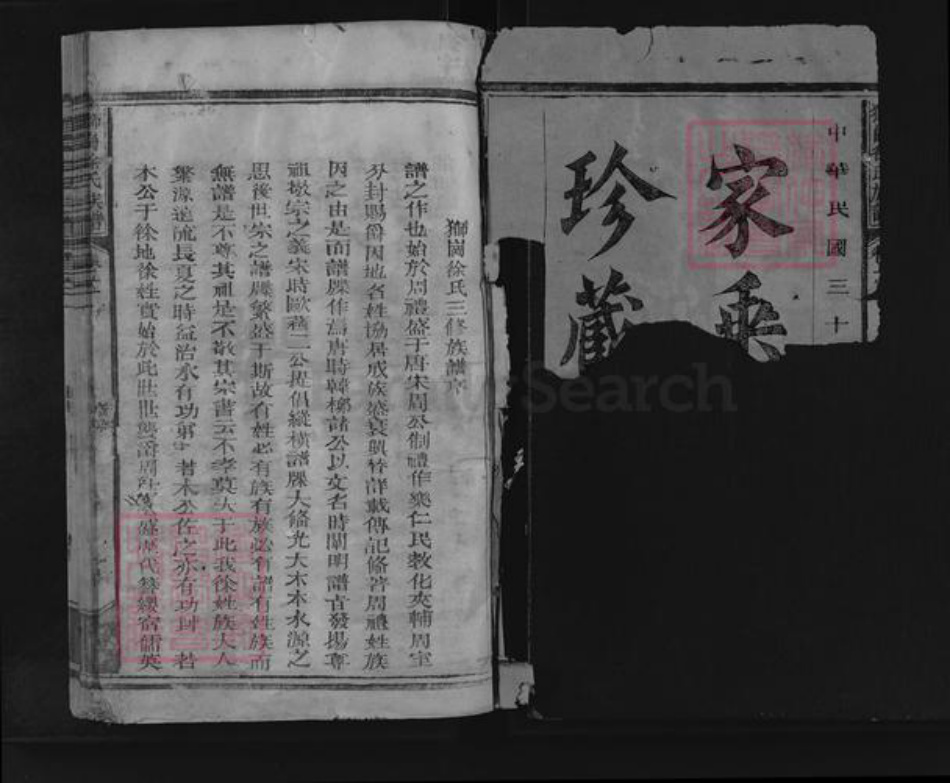 中華民國三十
家乘
珍藏
獅岡徐氏三修族譜序
譜之作也始於周禮盛于唐宋周公制禮作樂仁民教化夾輔周室
分封賜爵因地名姓協居成族盛衰興替詳載傳記修著周禮姓族
因之由是而譜牒作焉唐時韓柳諸公以文名時闡明譜古發揚尊
祖敬宗之義宋時歐蘇二公畏俱縱橫譜牒大修光大木本水源之
思後世宗之譜牒繁盛于斯故有姓必有族有族必有譜有姓族而
無譜是不尊其祖是不敬其宗書云不孝莫大于此我徐姓族大人
繁源遠流長夏之時益治水有功第 若木公佐之亦有功封 若
木公于徐地徐姓實始於此世世襲爵周 歷代簪纓宿儒英
Search